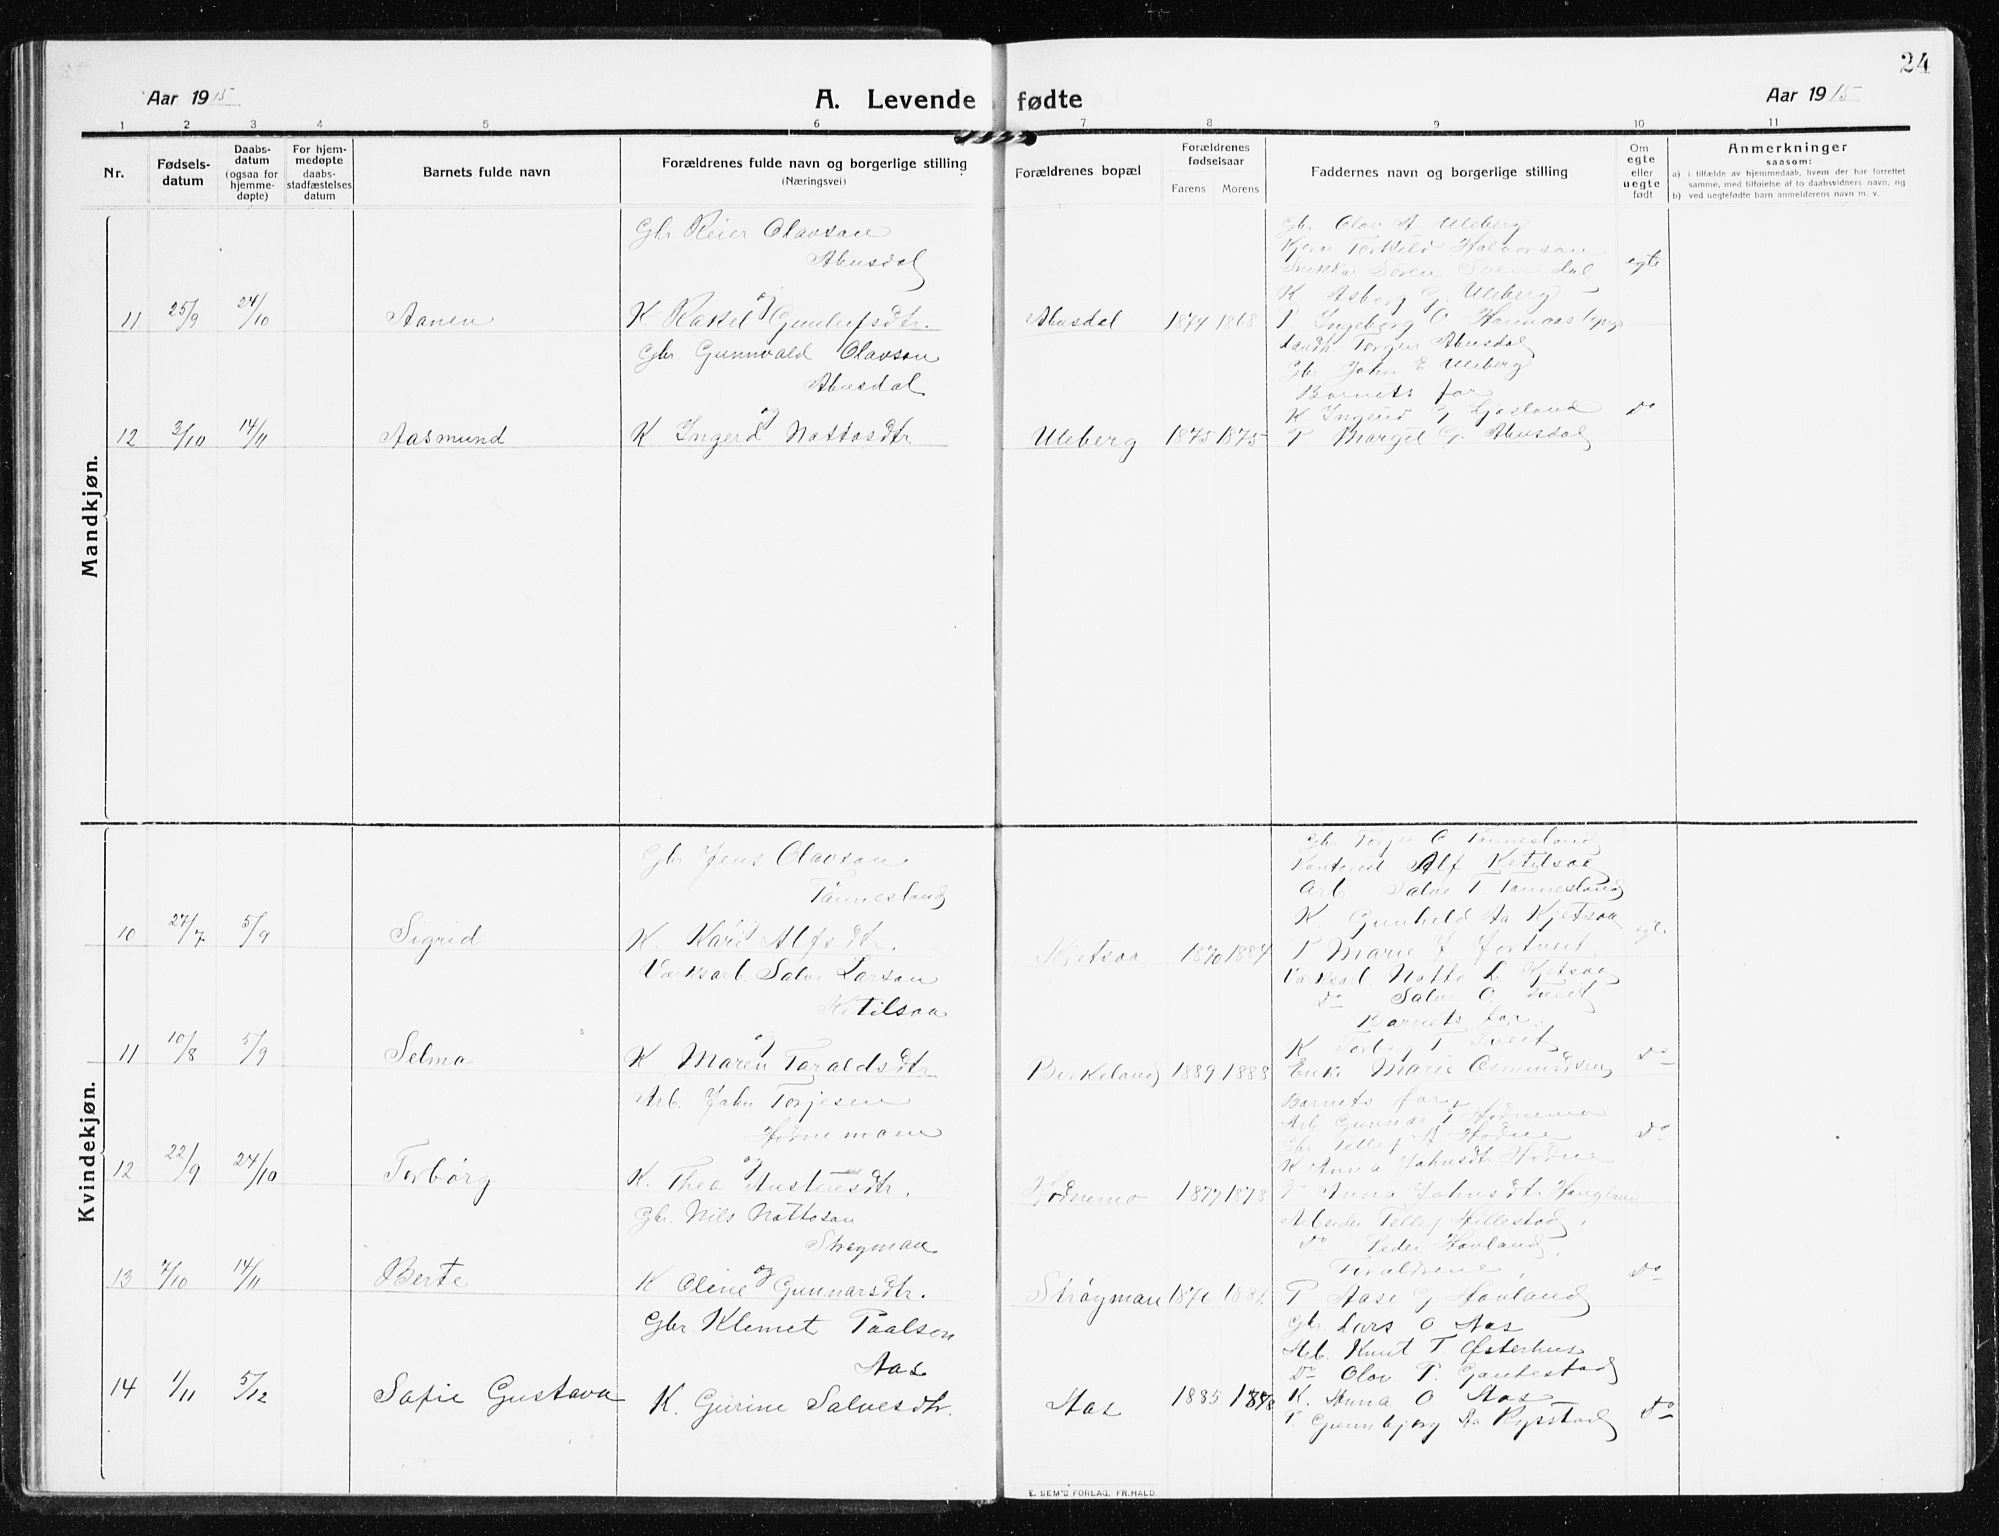 24
Aar 1915
A. Levende fødte
Aar 1915
1 2 3 4 5 6 7 8 9 10 11
Nr.
Fødsels-
datum
Daabs-
datum
(ogsaa for
hjemme-
døpte)
For hjem-
medøpte
daabs-
stadfæstelses
datum
Barnets fulde navn
Forældrenes fulde navn og borgerlige stilling
(Næringsvei)
Forældrenes bopæl
Forældrenes
fødselsaar
Farens Morens
Faddernes navn og borgerlige stilling
Om
egte
eller
uegte
født
Anmerkninger
saasom:
a) i tilfælde av hjemmedaab, hvem der har forrettet
samme, med tilføielse af to daabsvidners navn, og
b) ved uegtefødte barn anmelderens navn m. v.
Mandkjøn.
11 25/9 24/10 Aanen
Gbr. Reier Olavson
Abusdal
og
K. Rakel Gunlufsdtr.
Abusdal 1874 1868
Gbr Olov A. Uleberg
Kjem Torkeld Halvorson
Søren
K Asborg G. Uleberg
P Ingeborg O
Torgen Abusdal
egte
12 3/10 14/11 Aasmund
Gbr Gunnvald Olavson
Abusdal
og
K Ingerd Nottosdtr
Uleberg 1875 1875
Gbr John E Uleberg
Barnets far
K Ingerd G Ljosland
P Margit G. Abusdal
Do
Kvindekjøn.
10 27/7 5/9 Sigrid
Gbr Jens Olavson
Tønnesland
K. Kari Alfsdtr.
Kjetsaa 1870 1884
Gbr Torjer O Tønnesland
Kontorist Alf Ketilsaa
Arb Salve T. Tønnesland
K Gunhild Aa Kjetsaa
P Marie J Jortveit
egte
11 10/8 5/9 Selma
Værksarb. Salve Larson
Ketilsaa
og
K Maren Taraldsdtr
Birkeland 1889 1888
Værksarb. Notto L Kjetsaa
Do Salve O. Tveit
Barnets far.
K Torborg T Tveit
Enke Marie Osmundsen
Do
12 22/9 24/10 Torbórg
Arb. John Torjesen
Hodnemoen
og
K. Thea Austensdtr.
Hodnemo 1877 1878
Barnets far
Arb Gunnar T Hodnemo
Gbr Tellef A Hodne
K Anna Johnsdtr Hodne
P Anna Johnsdtr Haugland
Do
13 7/10 14/11 Berte
Gbr. Nils Nottoson
Strøyman
og
K. Oline Gunnarsdtr.
Strøyman 1876
Arbeider Tellef Hillestad,
Do Peder Hovland,
Forældrene,
P Aase G. Hovland
Do
14 1/11 5/12 Sofie Gustava
Gbr. Klemet Paalsen
Aas
K. Gurine Salvesdtr.
Aas 1885 1878
Gbr. Lars O Aas
Arb. Knut T. Østerhus
Do Olov P. Gautestad
K. Anna O Aas
P. Gunnbjørg Aa Rysstad
Do
E. SEM'S FORLAG, FR.HALD.